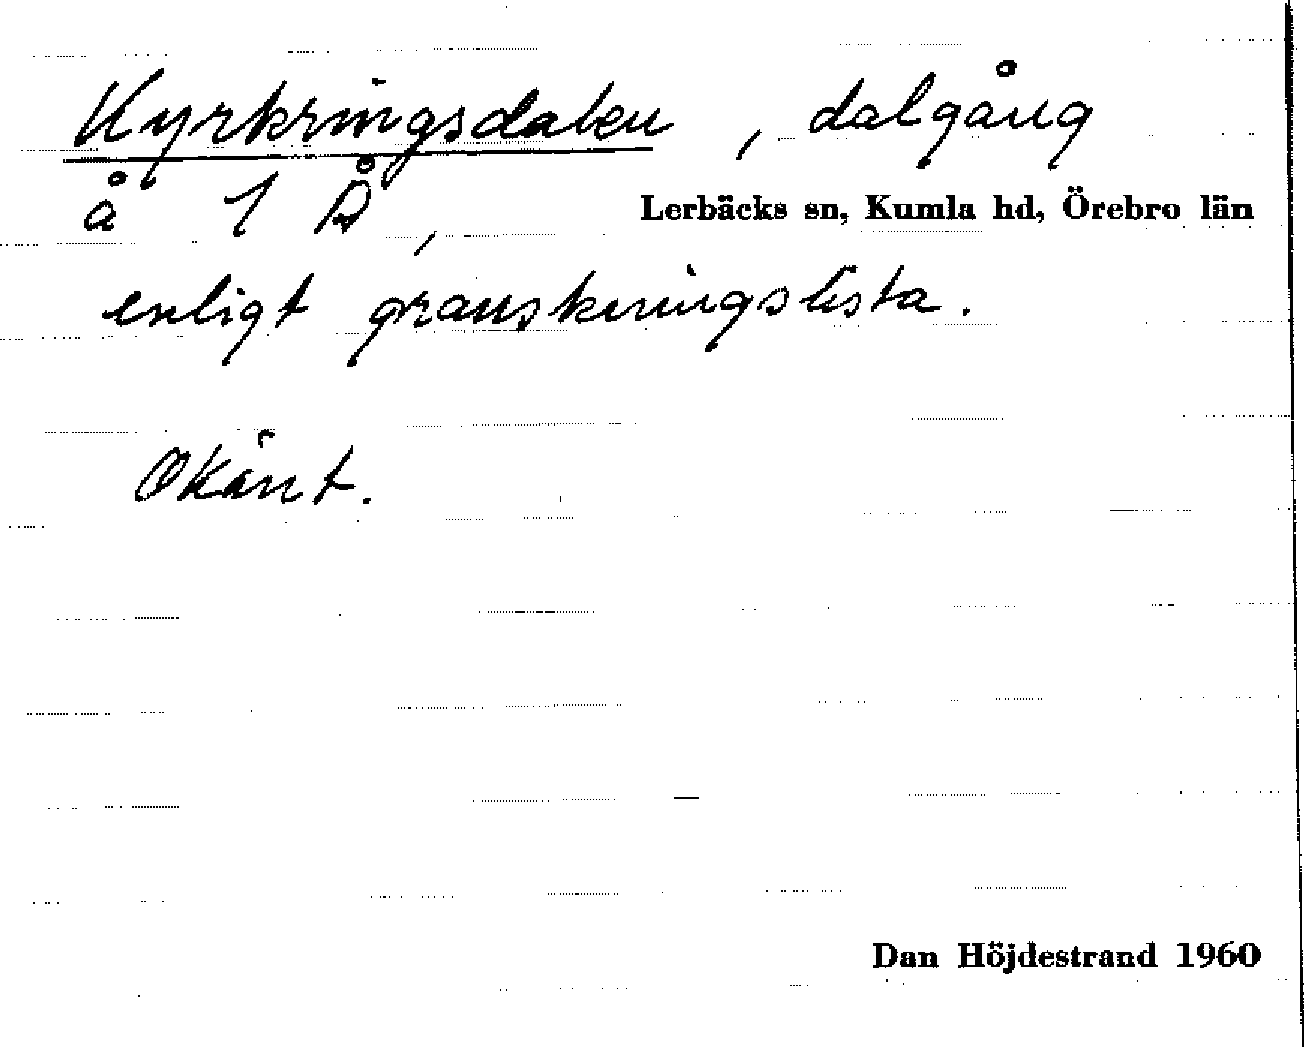 Kyrkringsdalen, dalgång
å 1 Å,
Lerbäcks sn, Kumla hd, Örebro län
enligt granskningslista.
Okänt.
Dan Höjdestrand 1960